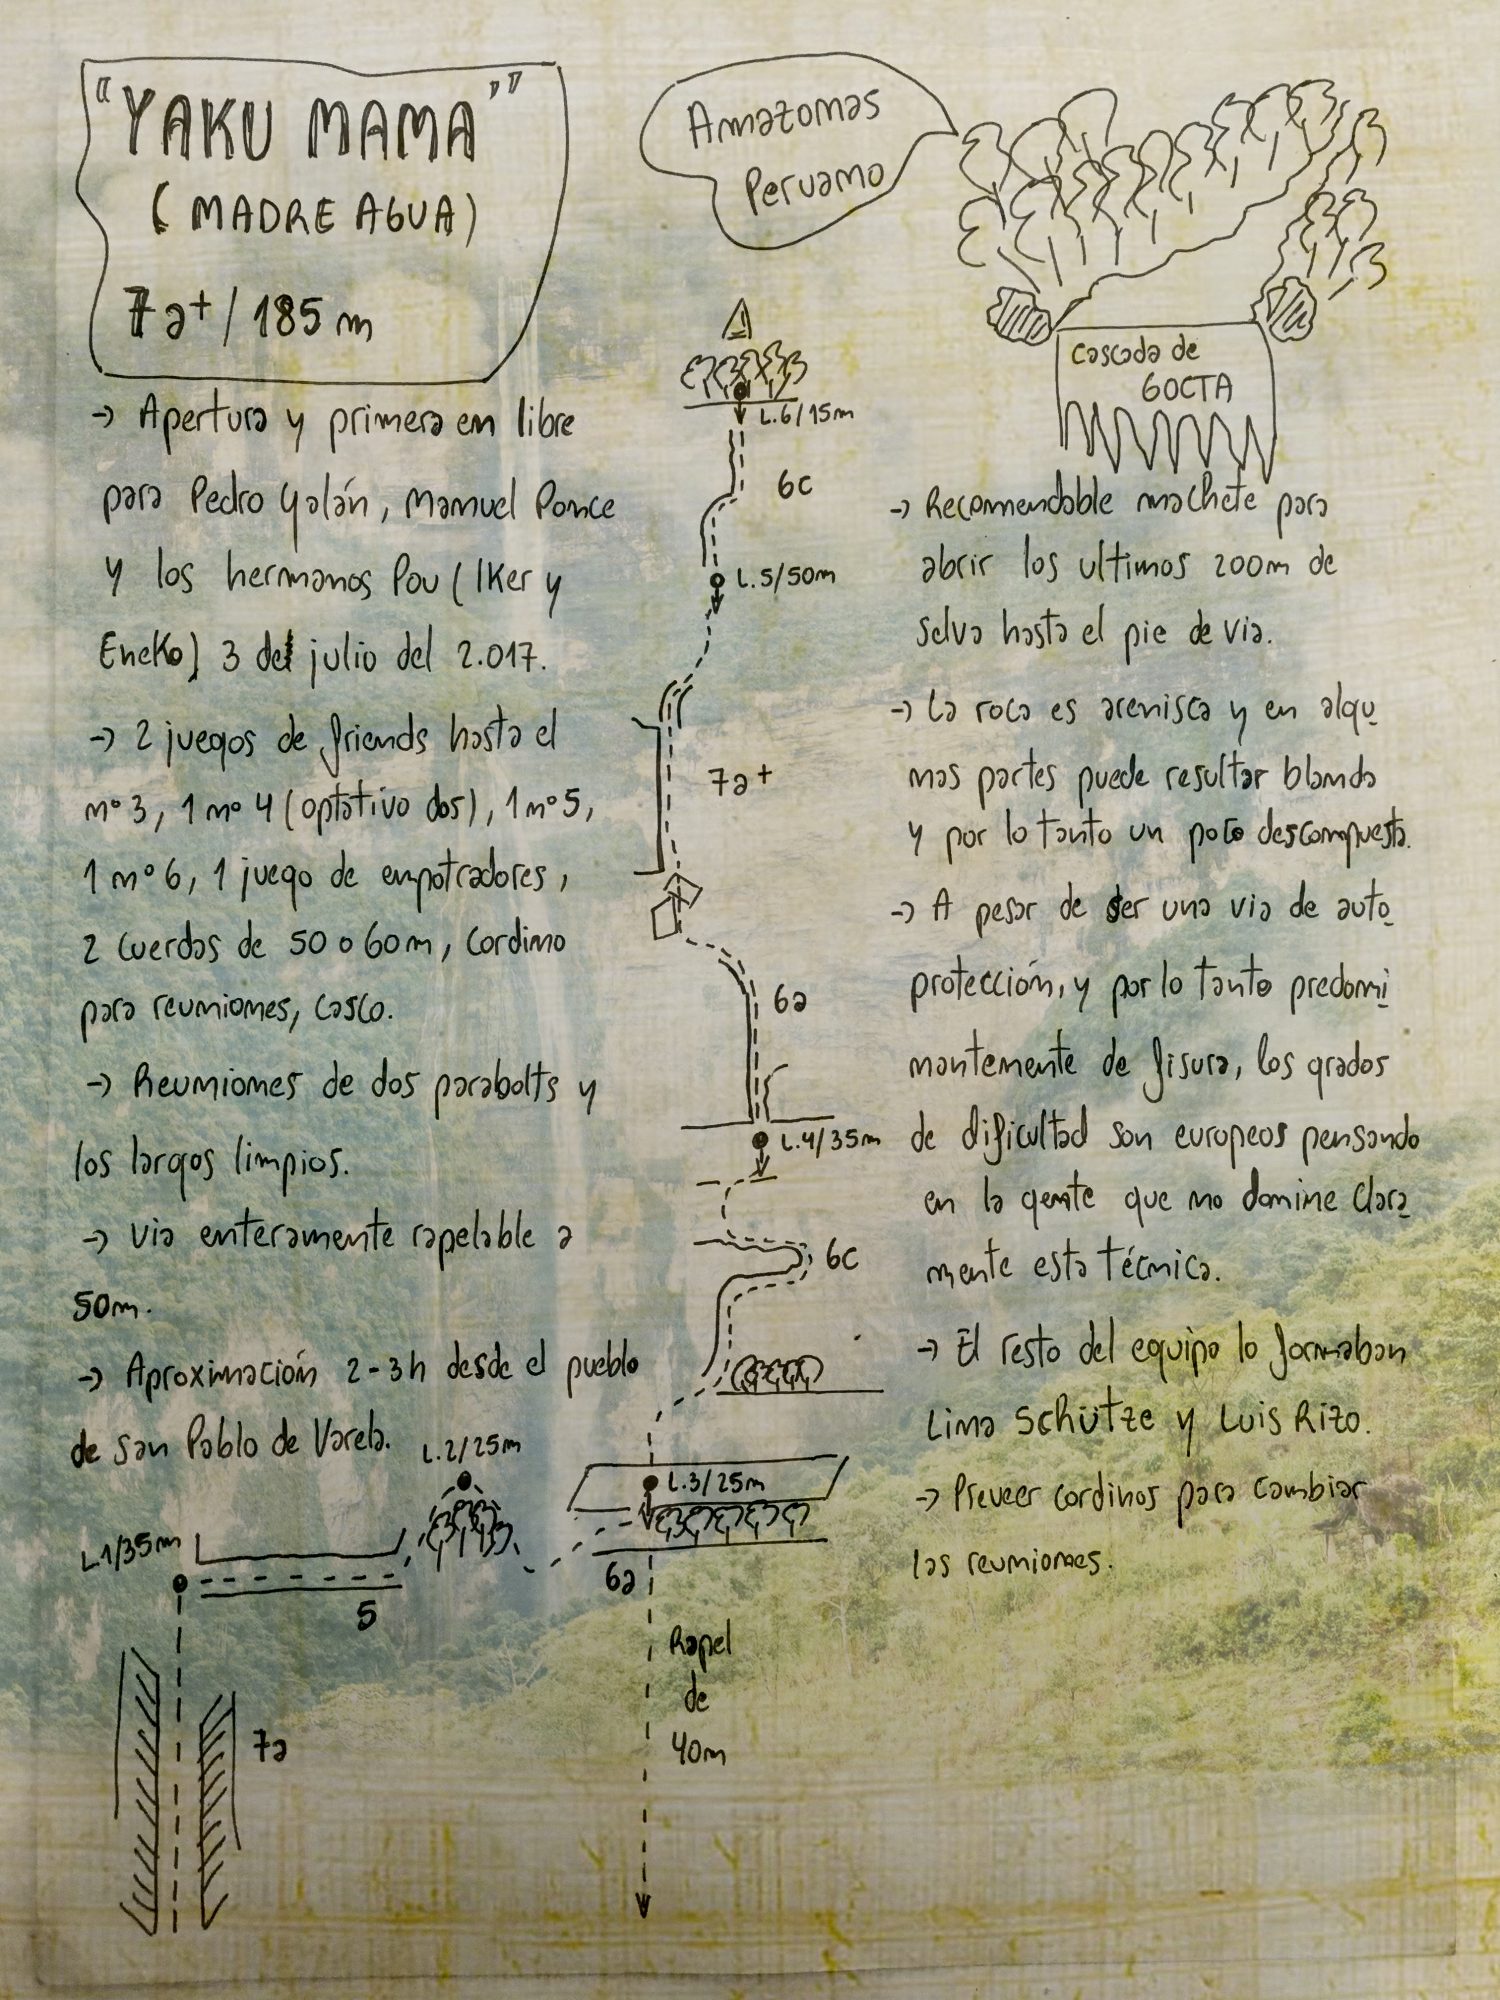 "YAKU MAMA"
(MADRE AGUA)
7a+ / 185 m
Amazonas
Peruano
Cascada de
GOCTA
→ Apertura y primera en libre
para Pedro Galán, Manuel Ponce
y los hermanos Pou (Iker y
Eneko) 3 del julio del 2.017.
→ 2 juegos de friends hasta el
nº 3, 1 nº 4 (optativo dos), 1 nº 5,
1 nº 6, 1 juego de empotradores,
2 cuerdas de 50 o 60m, cordino
para reuniones, casco.
→ Reuniones de dos parabolts y
los largos limpios.
→ Via enteramente rapelable a
50m.
→ Aproximación 2-3h desde el pueblo
de San Pablo de Varela.
L.6/15m
6c
L.5/50m
7a+
6a
L.4/35m
6c
L.3/25m
L.2/25m
L1/35m
5
6a
7a
Rapel
de
40m
→ Recomendable machete para
abrir los ultimos 200m de
selva hasta el pie de via.
→ La roca es arenisca y en algu
nas partes puede resultar blanda
y por lo tanto un poco descompuesta.
→ A pesar de ser una via de auto
protección, y por lo tanto predomi
nantemente de fisura, los grados
de dificultad son europeos pensando
en la gente que no domine clara
mente esta técnica.
→ El resto del equipo lo formaban
Lina Schütze y Luis Rizo.
→ Preveer cordinos para cambiar
las reuniones.